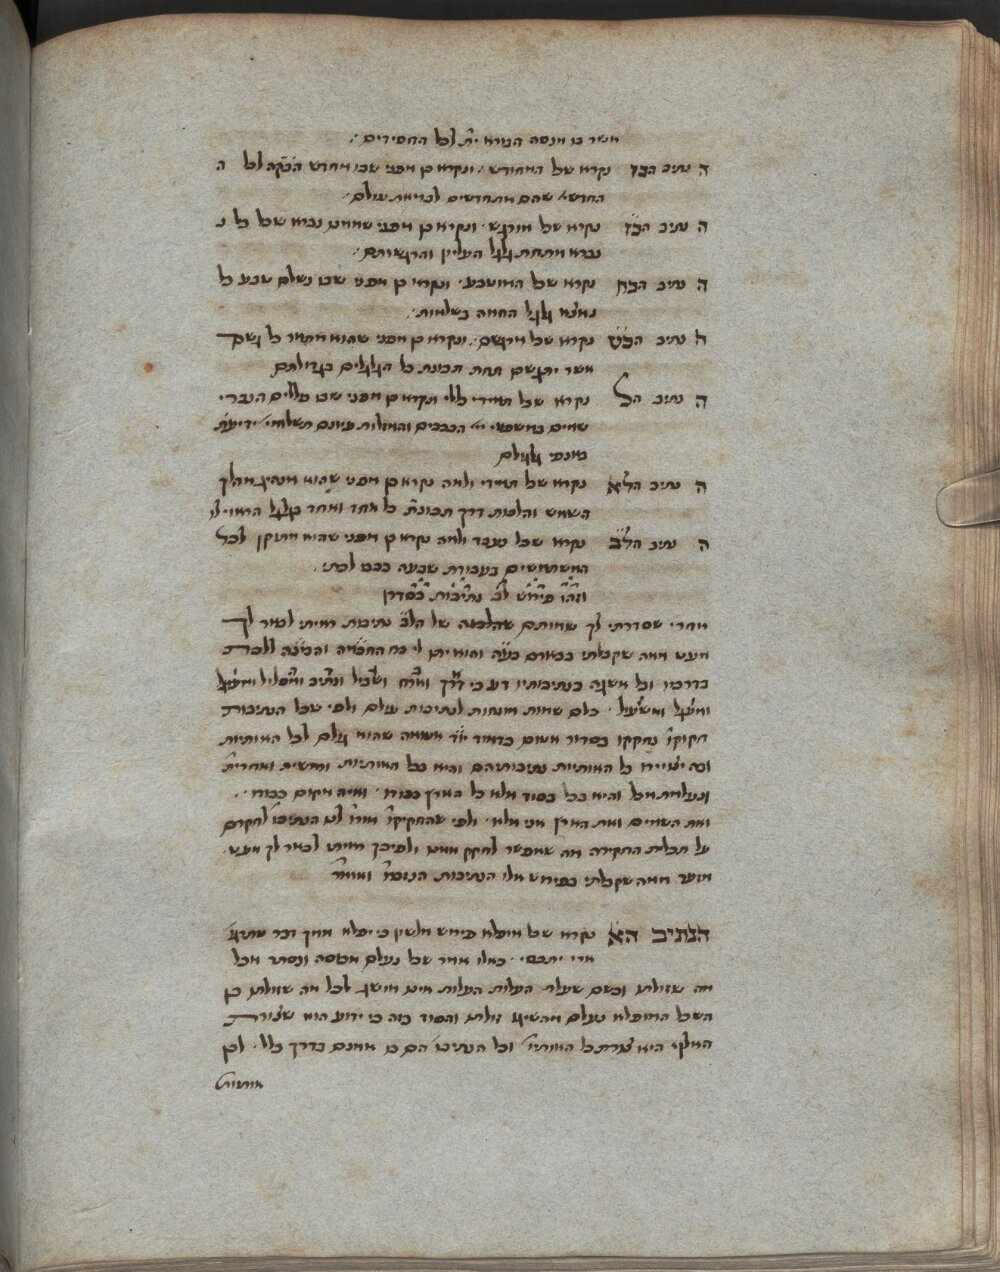 אשר בו מנסה הבורא ית' לכל החסידים :
ה נתיב הכו נקרא שכל המחודש : ונקרא כן מפני שבו מחדש הקב"ה לכל ה
החדשי' שהם מתחדשים לבריאת עולם :
ה נתיב הכז נקרא שכל מורגש · ונקרא כן מפני שממנו נברא שכל כל נ
נברא מתחת גלגל העליון והרגשותם :
ה נתיב הכח נקרא שכל המוטבע · ונקרא כן מפני שבו נשלם טבע כל
נמצא גלגל החמה בשלמות :
ה נתיב הכט נקרא שכל מוגשם : ונקרא כן מפני שהוא מתאר כל גשם
אשר יתגשם תחת תכונת כל הגלגלים בגדולתם
ה נתיב הל נקרא שכל תמידי כללי ונקרא כן מפני שבו כוללים הוברי
שמים במשפטי הככבים והמזלות עיונם תשלומי ידיעת
באופני גלגלם
ה נתיב הלא נקרא שכל תמידי ולמה נקרא כן מפני שהוא מנהיג מהלך
השמש והלבנה דרך תכונת כל אחד ואחד בגלגל הראוי לו
ה נתיב הלב נקרא שכל נעבד ולמה נקרא כן מפני שהוא מתוקן לכל
המשתמשים בעבודת שבעה ככבי לכת :
וזהו פירוש לב נתיבות כסדרן
אחרי שסדרתי לך שמותם שהלכנה של הלב נתיבות ראיתי לבאר לך
מעט ממה שקבלתי בביאורם בע"ה והוא יתן לי כח החכמה והבינה ללכת
בדרכיו וכל משגה בנתיבותיו דע כי דרך וארח ושביל ונתיב ומסלול ומעגל
ומשעול · כלם שמות מונחות לנתיבות עולם ולפי שכל הנתיבות
חקוקי' נחקקו בסדור רשום בדמות יו"ד משמה שהוא גולם לכל האותיות
וממנו יצויירו כל האותיות נתיבותיהם והיא בכל האותיות ראשית ואחרית
ונעלמת מכל והיא בכל בסוד מלא כל הארץ כבודו · ואיה מקום כבודו ·
ואת השמים ואת הארץ אני מלא · ולפי שהחקיקי' אורו לב הנתיבו' לחקרם
על תכלית החקירה מה שאפשר לחקק ממנו ולפיכך ראיתי לבאר לך מעט ·
מזער ממה שקבלתי בפירוש אלו הנתיבות הנזכרי' ואומר
הנתיב הא נקרא שכל מופלא פירוש מלשון כי יפלא ממך דבר
כאלו אמר שכל נעלם מכוסה ונסתר מכל
מה שזולתו וכשם שעלת העלות העלות אינו מושג לכל מה שזולתו כן
השכל המופלא נעלם מהשיג זולתו והסוד בזה כי ידוע הוא שצורת
האלף היא צורת כל האותיו' וכל הנתיבו' הם בו אמנם בדרך כלל · לכן
אותות